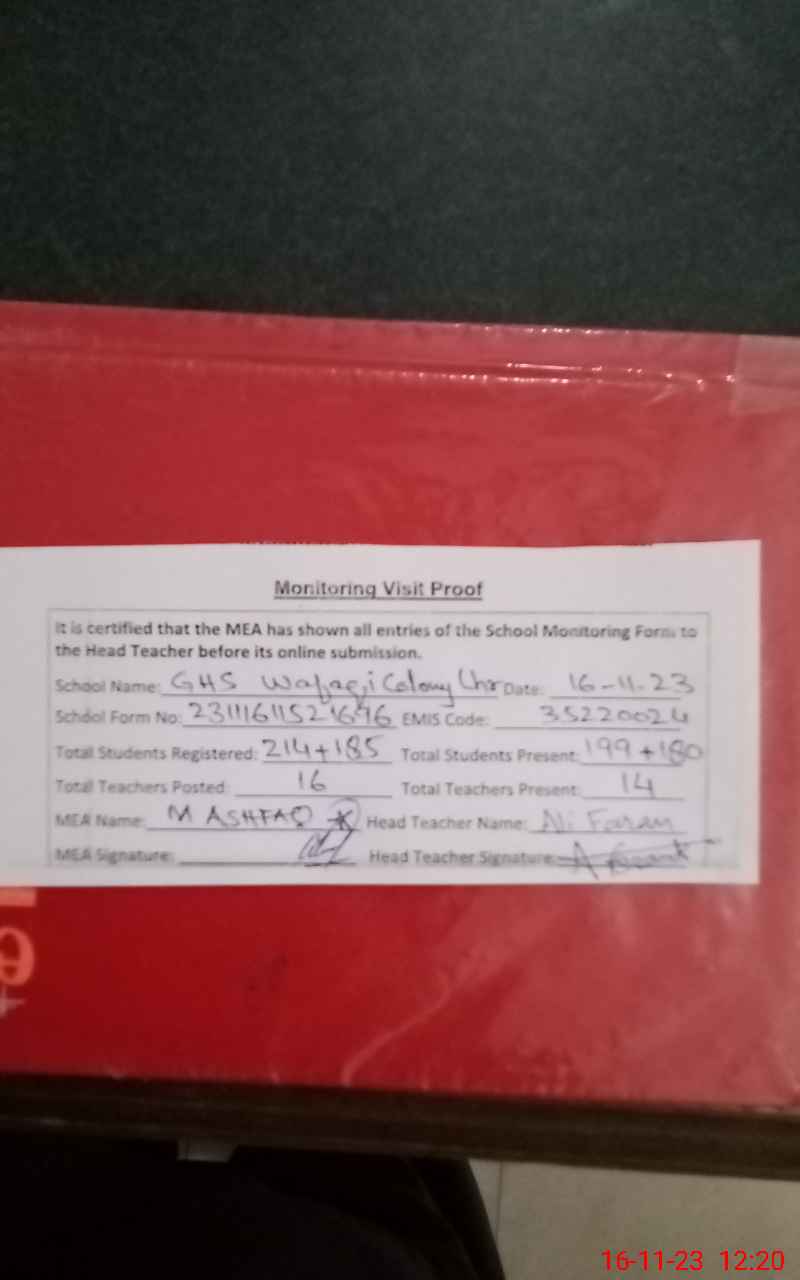 Monitoring Visit Proof
It is certified that the MEA has shown all entries of the School Monitoring Form to
the Head Teacher before its online submission.
School Name: GHS Wafaqi Colony Lhr Date: 16-11-23
School Form No: EMIS Code: 35220024
Total Students Registered: 214+185 Total Students Present: 199+180
Total Teachers Posted: 16 Total Teachers Present: 14
MEA Name: M ASHFAQ Head Teacher Name: Ali Faran
MEA Signature: Head Teacher Signature:
e
16-11-23 12:20